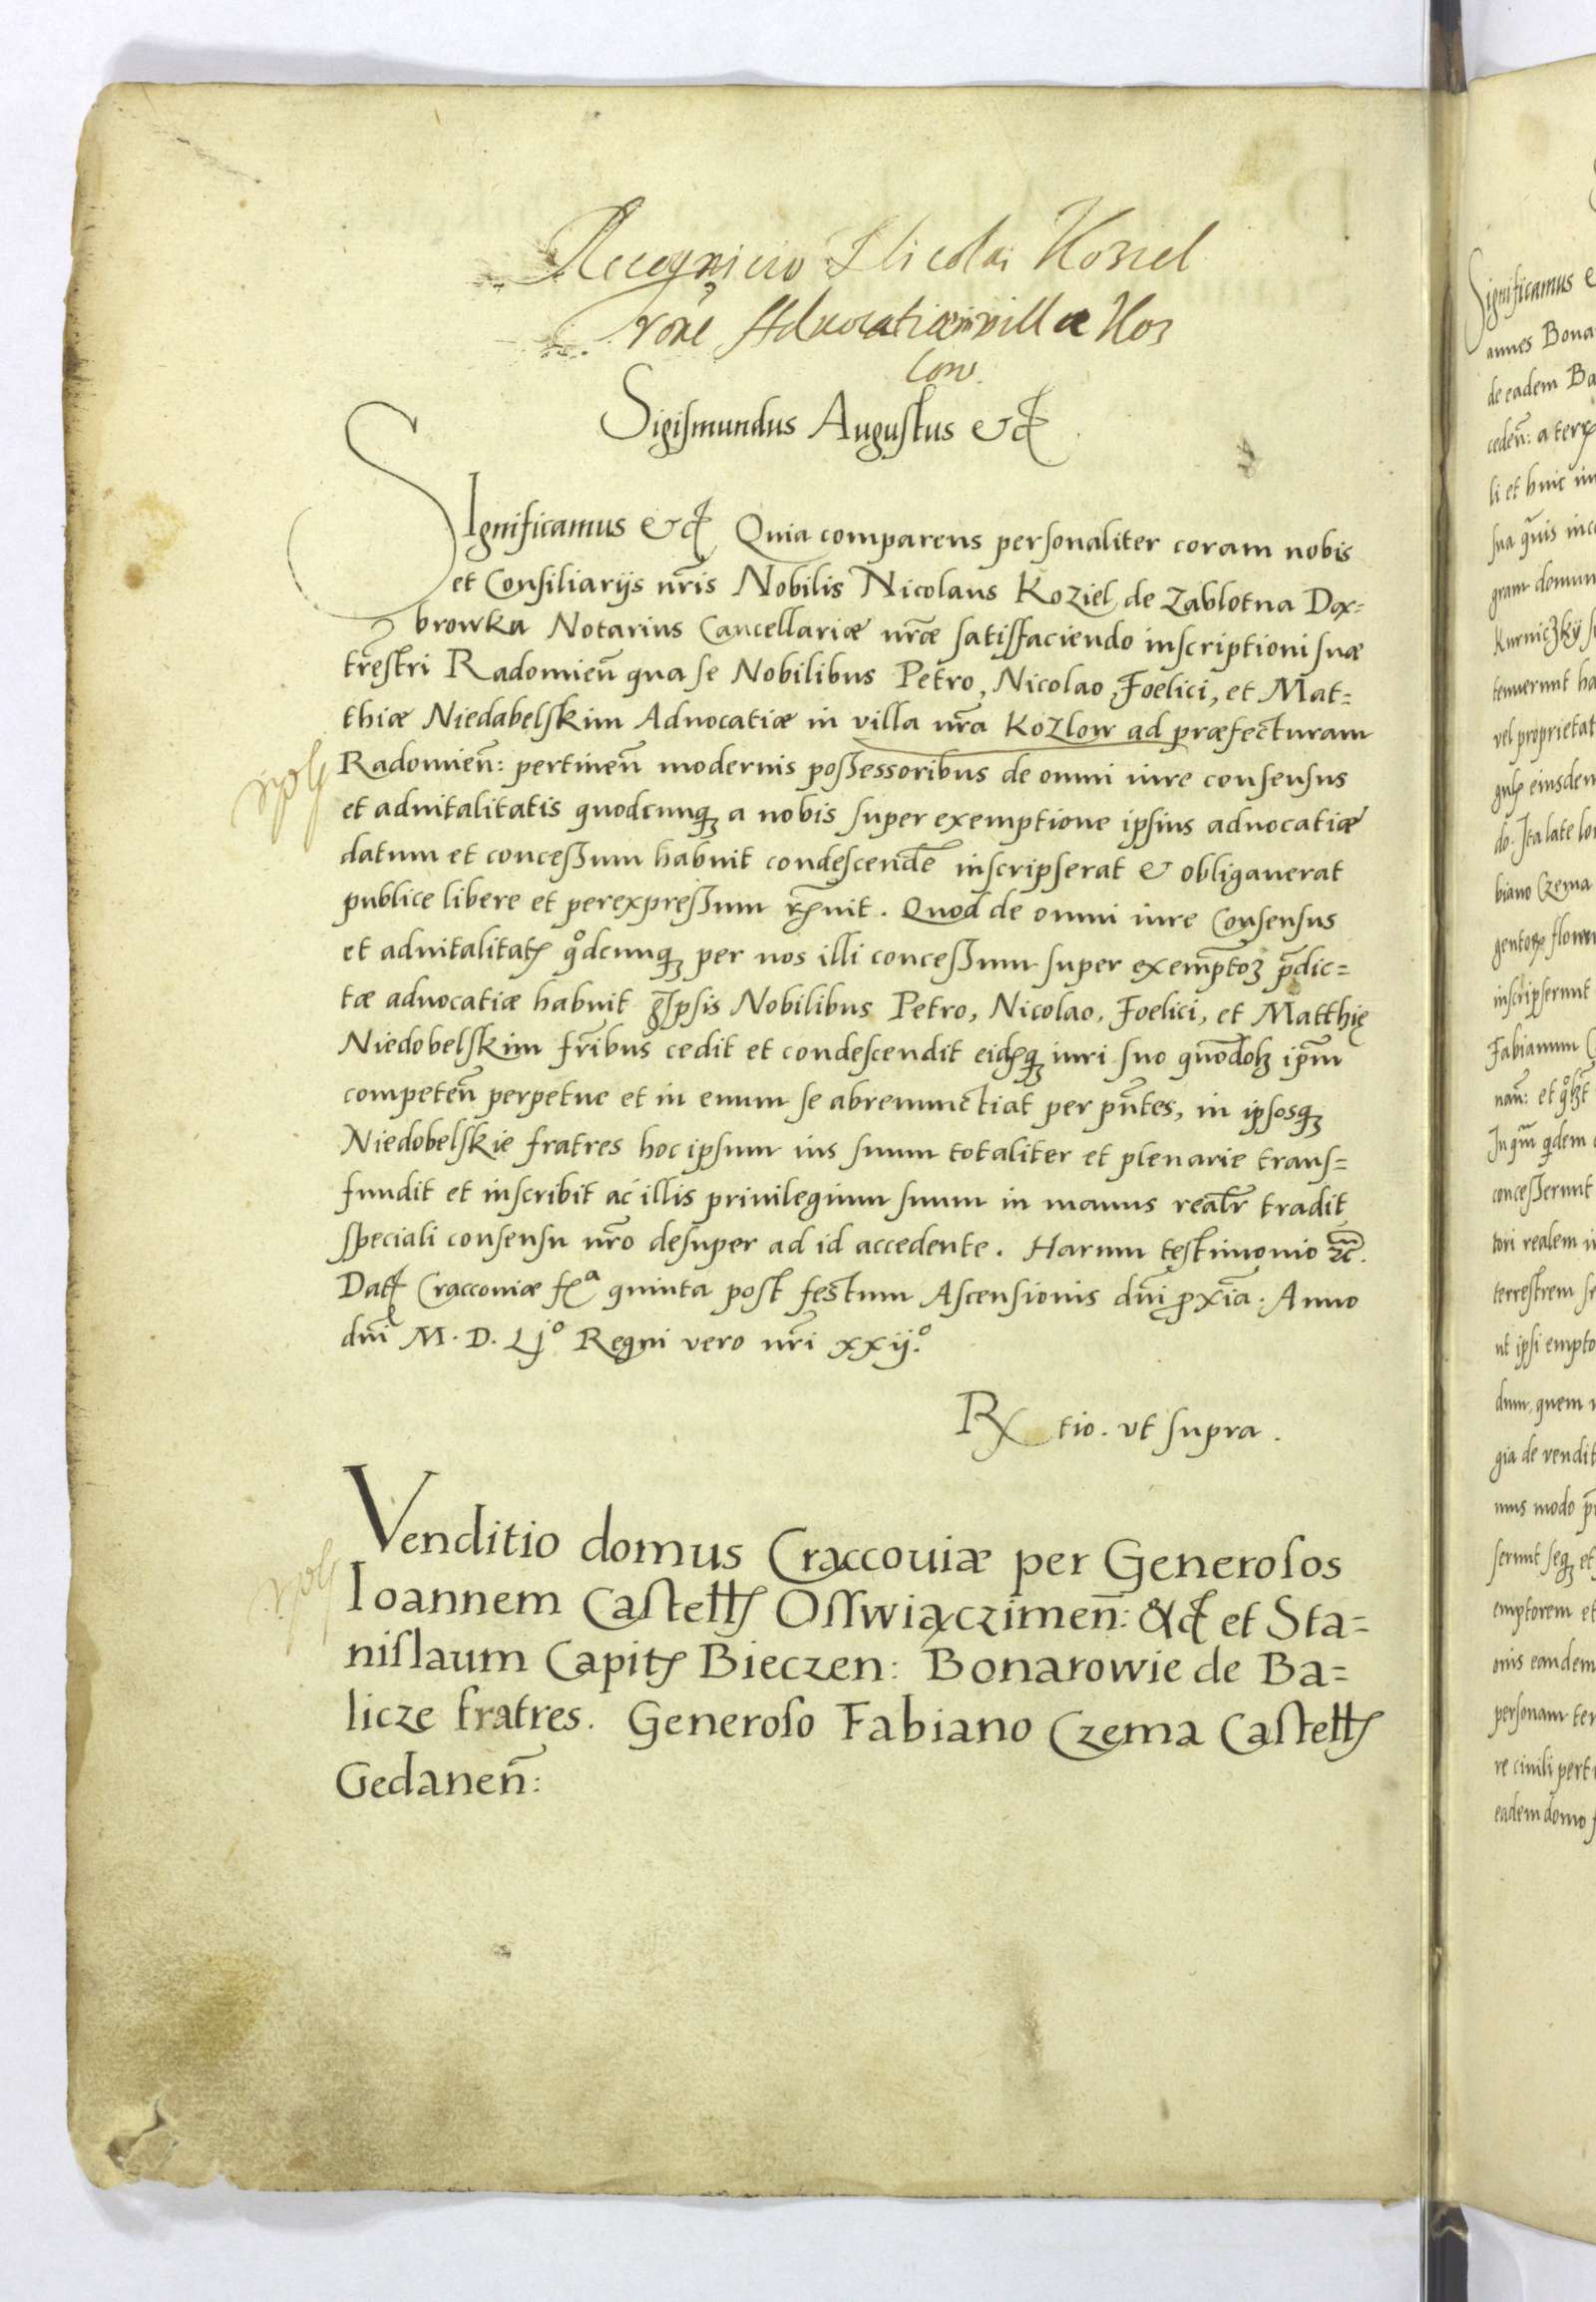 Recognicio Nicolai Koziel
rõne Aduocatiae in villa Koz
low
Sigismundus Augustus &c
SIgnificamus &c Quia comparens personaliter coram nobis
et Consiliarijs nr̃is Nobilis Nicolaus Koziel de Zablotna Dąx=
browka Notarius Cancellariæ nr̃æ satisfaciendo inscriptioni suæ
tr̃estri Radomien̄ qua se Nobilibus Petro, Nicolao, Foelici, et Mat=
thiæ Niedabelskim Aduocatiæ in villa nr̃a Kozlow ad præfecturam
Radomien̄: pertinen̄ modernis poßessoribus de omni iure consensus
et aduitalitatis quodcunqꝫ a nobis super exemptione ipsius aduocatiæ
datum et conceßum habuit condescendẽ inscripserat & obligauerat
publice libere et perexpreßum rꝭnuit. Quod de omni iure Consensus
et aduitalitatꝭ qo̊dcunqꝫ per nos illi conceßum super exemptoꝫ p̃dic=
tæ aduocatiæ habuit Ipsis Nobilibus Petro, Nicolao, Foelici, et Matthię
Niedobelskim fr̃ibus cedit et condescendit eidꝭqꝫ iuri suo quõdolꝫ ip̃m
competen̄ perpetue et in euum se abrenunctiat per pñtes, in ipsosqꝫ
Niedobelskie fratres hoc ipsum ius suum totaliter et plenarie trans=
fundit et inscribit ac illis priuilegium suum in manus realr̃ tradit
speciali consensu nr̃o desuper ad id accedente. Harum testimonio ꝛc.
Datꝭ Cracconiæ fꝭª quinta post festum Ascensionis dñi ꝓxĩa. Anno
dñi M. D. Lj° Regni vero nr̃i xxij.°
Rꝭ tio. vt supra.
Venditio domus Craccouiæ per Generosos
Ioannem Castellꝭ Osswiąxczimen̄: &c et Sta=
nislaum Capitꝭ Bieczen: Bonarowie de Ba=
licze fratres. Generoso Fabiano Czema Castellꝭ
Gedanen̄: